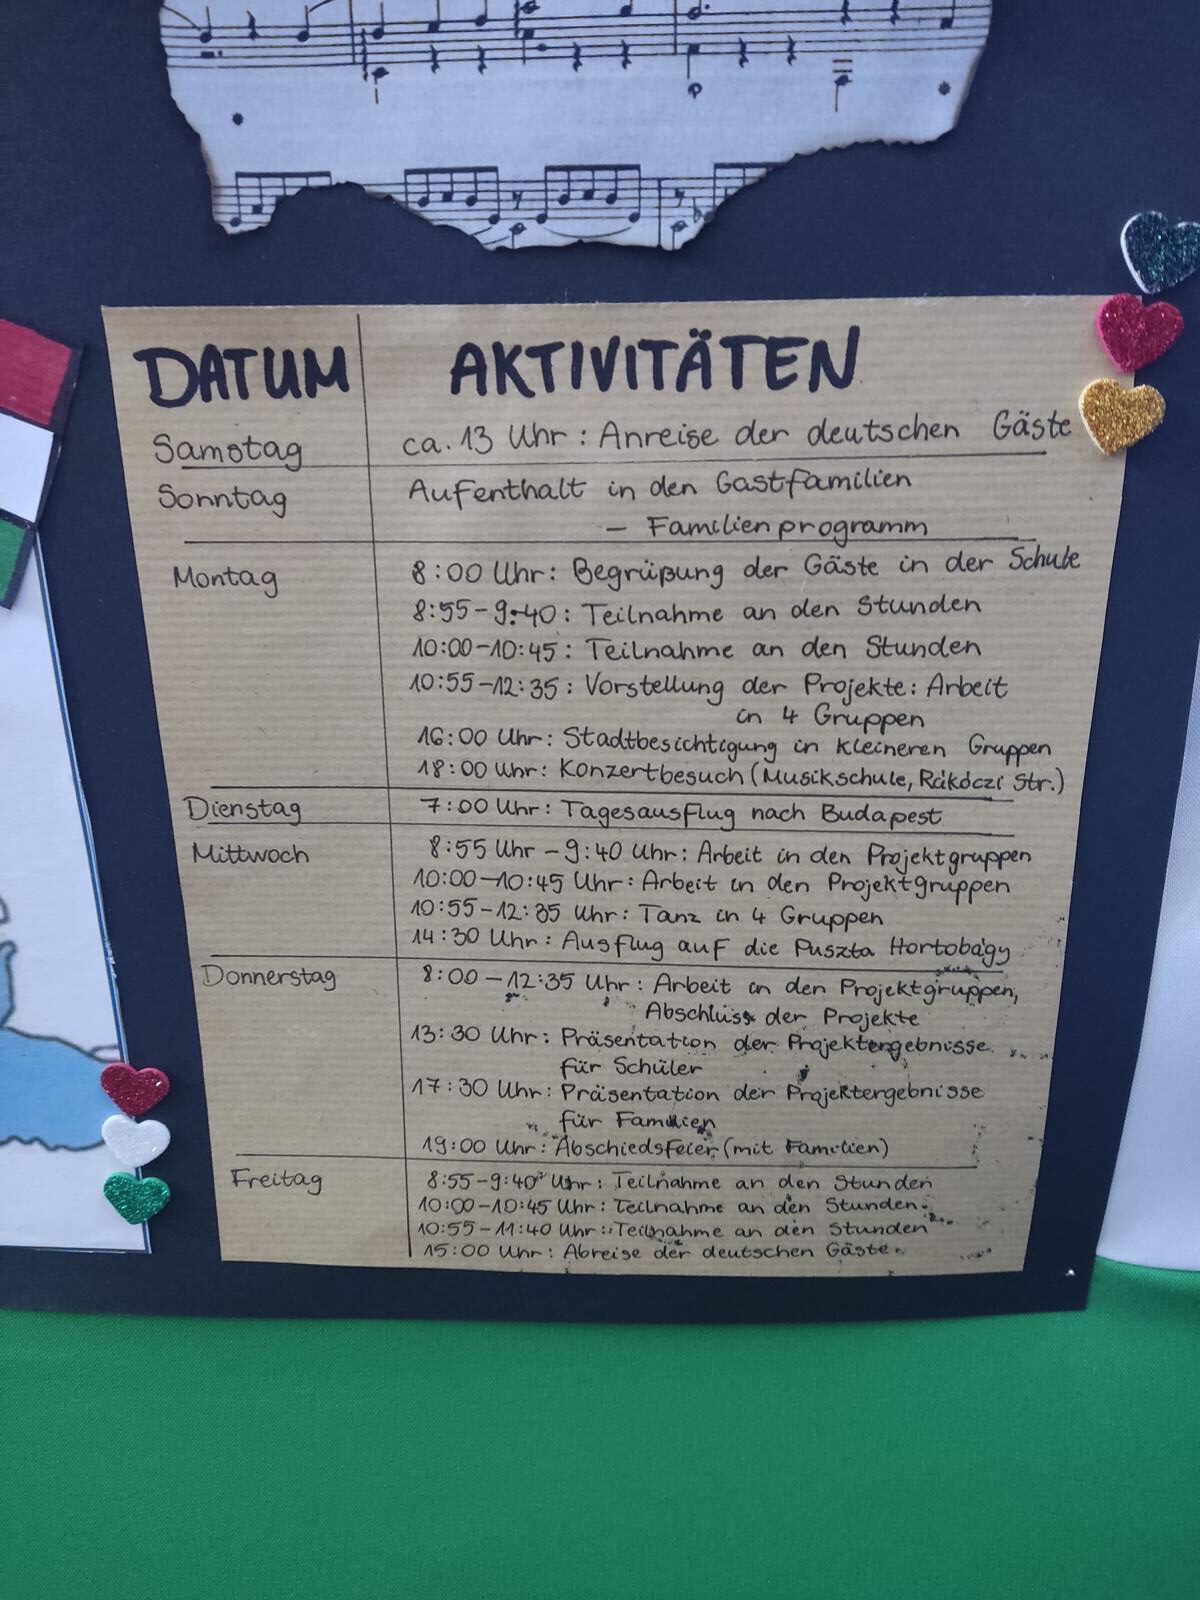 DATUM AKTIVITÄTEN
Samstag ca. 13 Uhr: Anreise der deutschen Gäste
Sonntag Aufenthalt in den Gastfamilien
– Familienprogramm
Montag 8:00 Uhr: Begrüßung der Gäste in der Schule
8:55-9:40: Teilnahme an den Stunden
10:00-10:45: Teilnahme an den Stunden
10:55-12:35: Vorstellung der Projekte: Arbeit
in 4 Gruppen
16:00 Uhr: Stadtbesichtigung in kleineren Gruppen
18:00 Uhr: Konzertbesuch (Musikschule, Rákóczi Str.)
Dienstag 7:00 Uhr: Tagesausflug nach Budapest
Mittwoch 8:55 Uhr – 9:40 Uhr: Arbeit in den Projektgruppen
10:00–10:45 Uhr: Arbeit in den Projektgruppen
10:55-12:35 Uhr: Tanz in 4 Gruppen
14:30 Uhr: Ausflug auf die Puszta Hortobágy
Donnerstag 8:00 – 12:35 Uhr: Arbeit in den Projektgruppen,
Abschluss der Projekte
13:30 Uhr: Präsentation der Projektergebnisse
für Schüler
17:30 Uhr: Präsentation der Projektergebnisse
für Familien
19:00 Uhr: Abschiedsfeier (mit Familien)
Freitag 8:55-9:40 Uhr: Teilnahme an den Stunden
10:00-10:45 Uhr: Teilnahme an den Stunden
10:55-11:40 Uhr: Teilnahme an den Stunden
15:00 Uhr: Abreise der deutschen Gäste